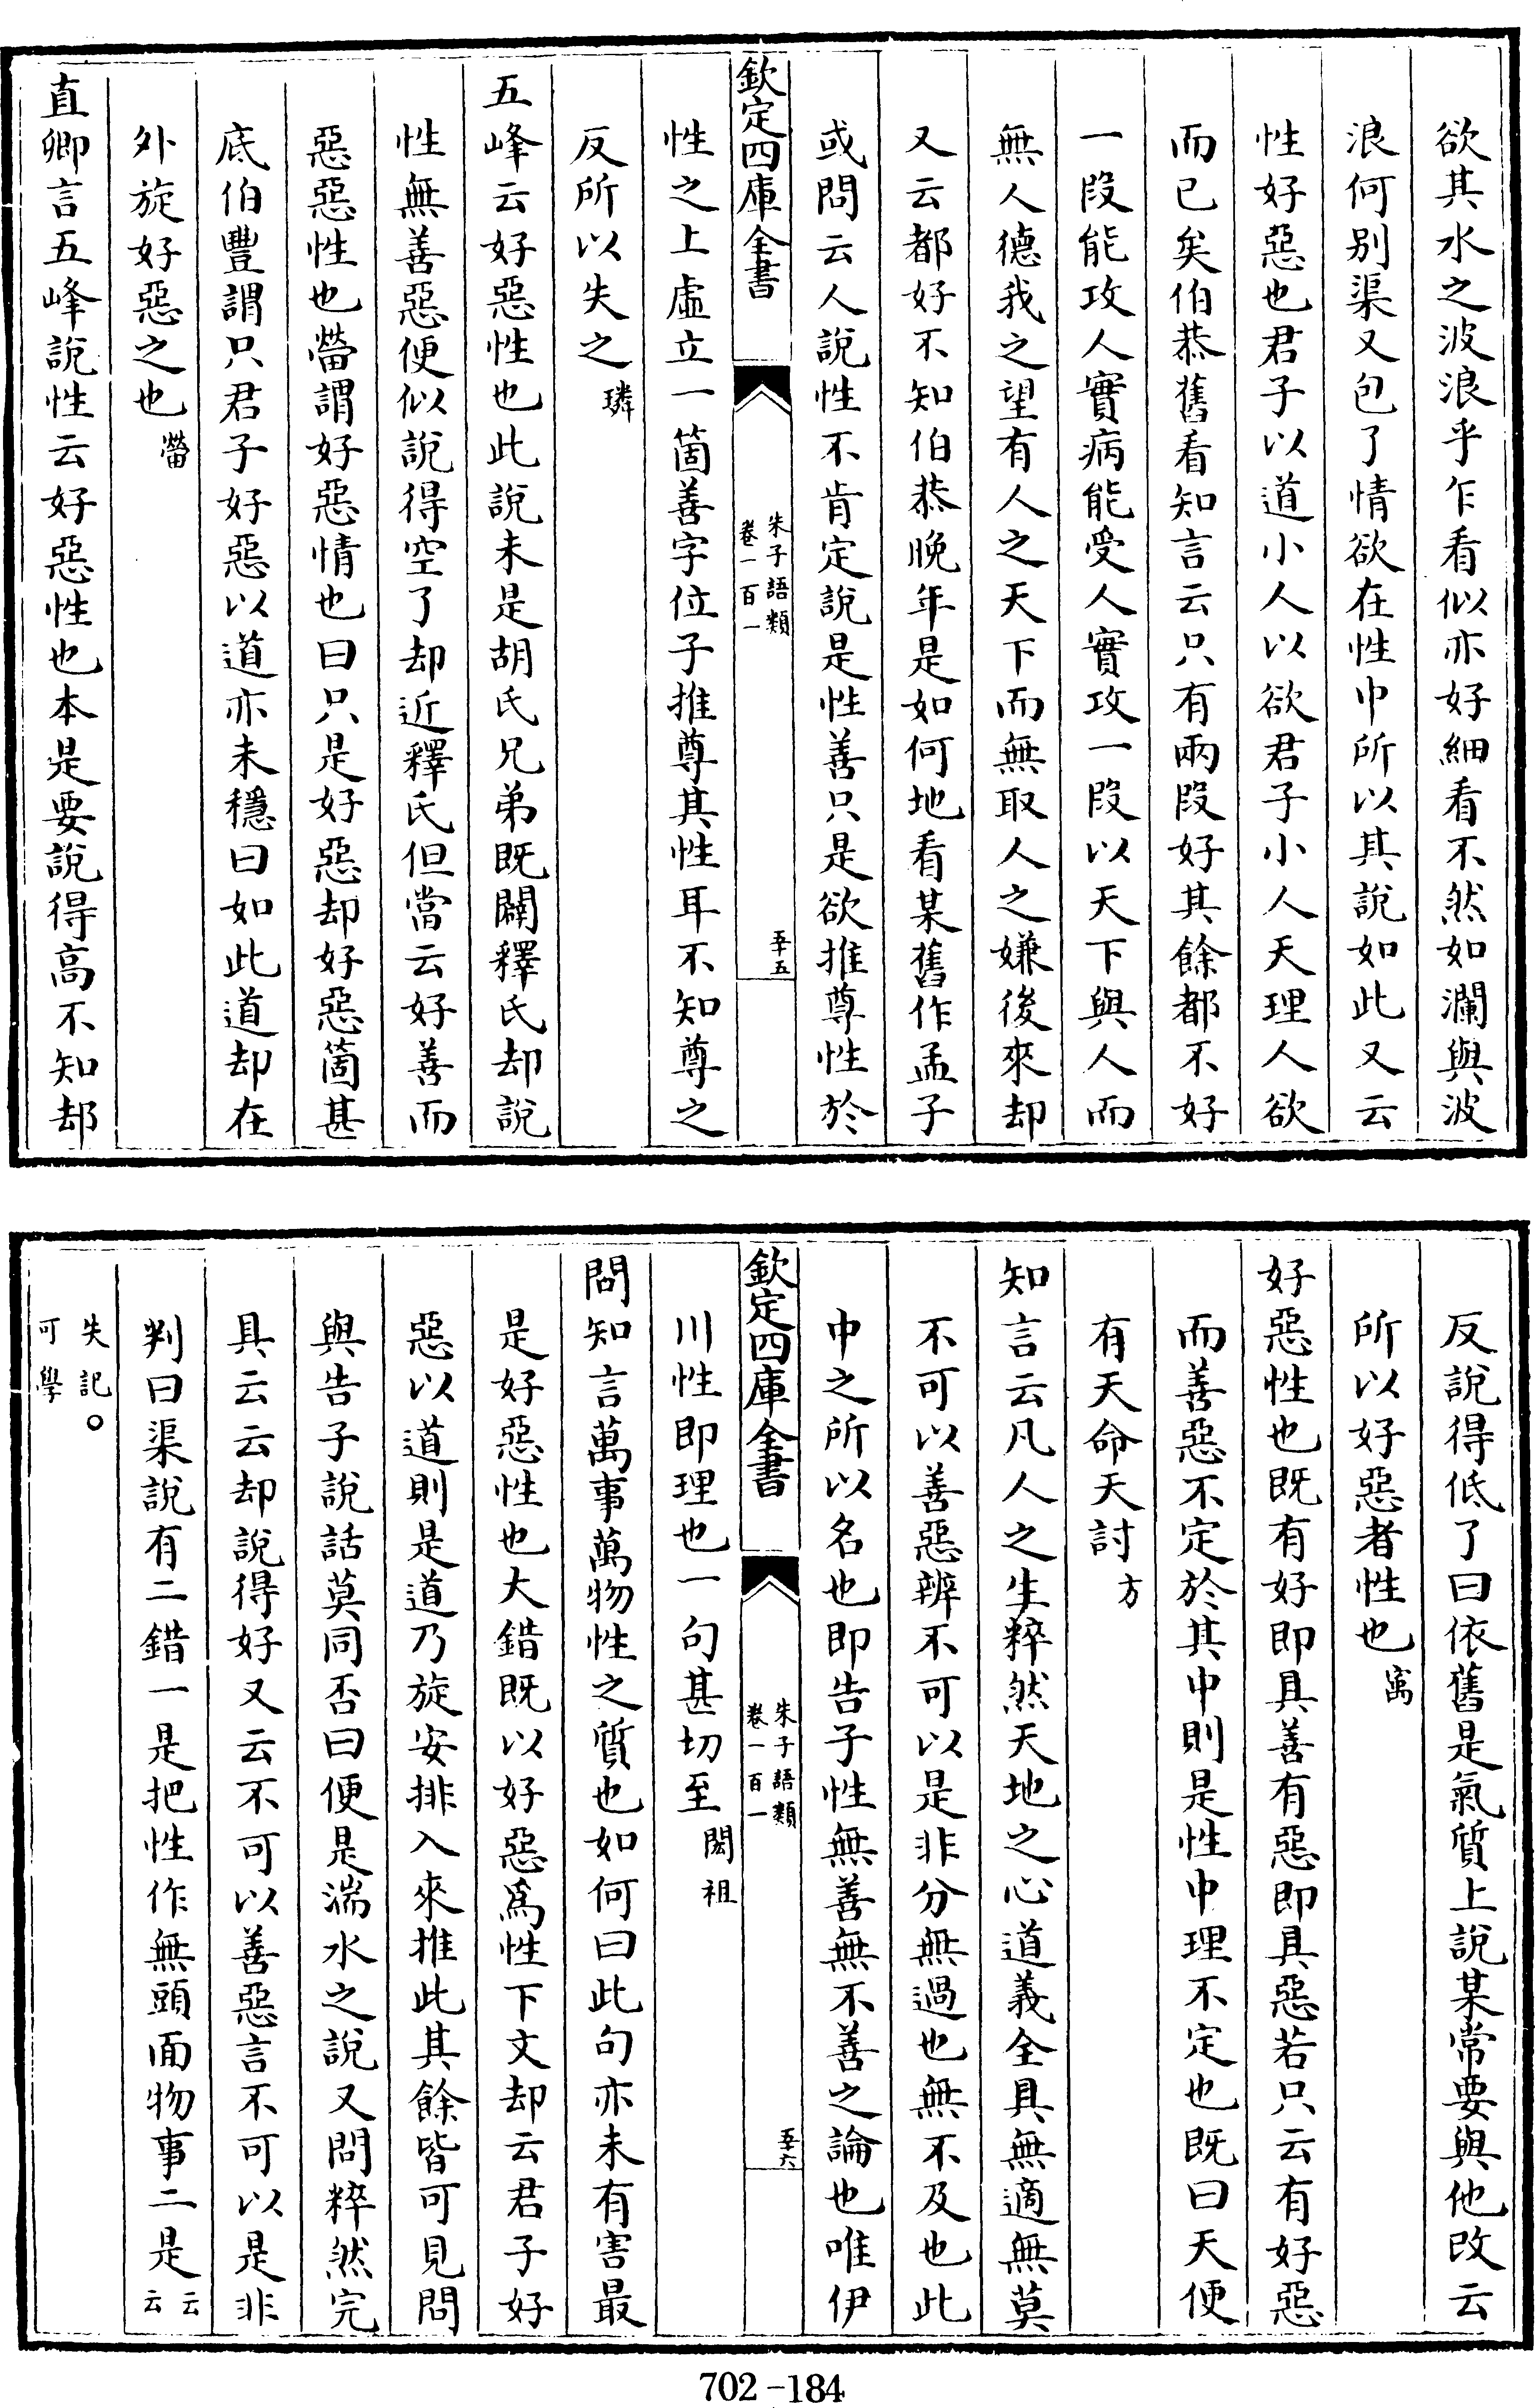 欲其水之波浪乎乍看似亦好細看不然如瀾與波
浪何别渠又包了情欲在性中所以其說如此又云
性好惡也君子以道小人以欲君子小人天理人欲
而已矣伯恭舊看知言云只有兩段好其餘都不好
一段能攻人實病能受人實攻一段以天下與人而
無人德我之望有人之天下而無取人之嫌後來却
又云都好不知伯恭晚年是如何地看某舊作孟子
或問云人說性不肯定說是性善只是欲推尊性於
欽定四庫全書
朱子語類
卷一百一
五十五
性之上虛立一箇善字位子推尊其性耳不知尊之
反所以失之 璘
五峰云好惡性也此說未是胡氏兄弟既闢釋氏却說
性無善惡便似說得空了却近釋氏但當云好善而
惡惡性也㽦謂好惡情也曰只是好惡却好惡箇甚
底伯豐謂只君子好惡以道亦未穩曰如此道却在
外旋好惡之也 㽦
直卿言五峰說性云好惡性也本是要說得高不知却
反說得低了曰依舊是氣質上說某常要與他改云
所以好惡者性也 㝢
好惡性也既有好即具善有惡即具惡若只云有好惡
而善惡不定於其中則是性中理不定也既曰天便
有天命天討 方
知言云凡人之生粹然天地之心道義全具無適無莫
不可以善惡辨不可以是非分無過也無不及也此
中之所以名也即告子性無善無不善之論也唯伊
欽定四庫全書
朱子語類
卷一百一
五十六
川性即理也一句甚切至 閎祖
問知言萬事萬物性之質也如何曰此句亦未有害最
是好惡性也大錯既以好惡爲性下文却云君子好
惡以道則是道乃旋安排入來推此其餘皆可見問
與告子說話莫同否曰便是湍水之說又問粹然完
具云云却說得好又云不可以善惡言不可以是非
判曰渠說有二錯一是把性作無頭面物事二是云云
失記○
可學
702-184